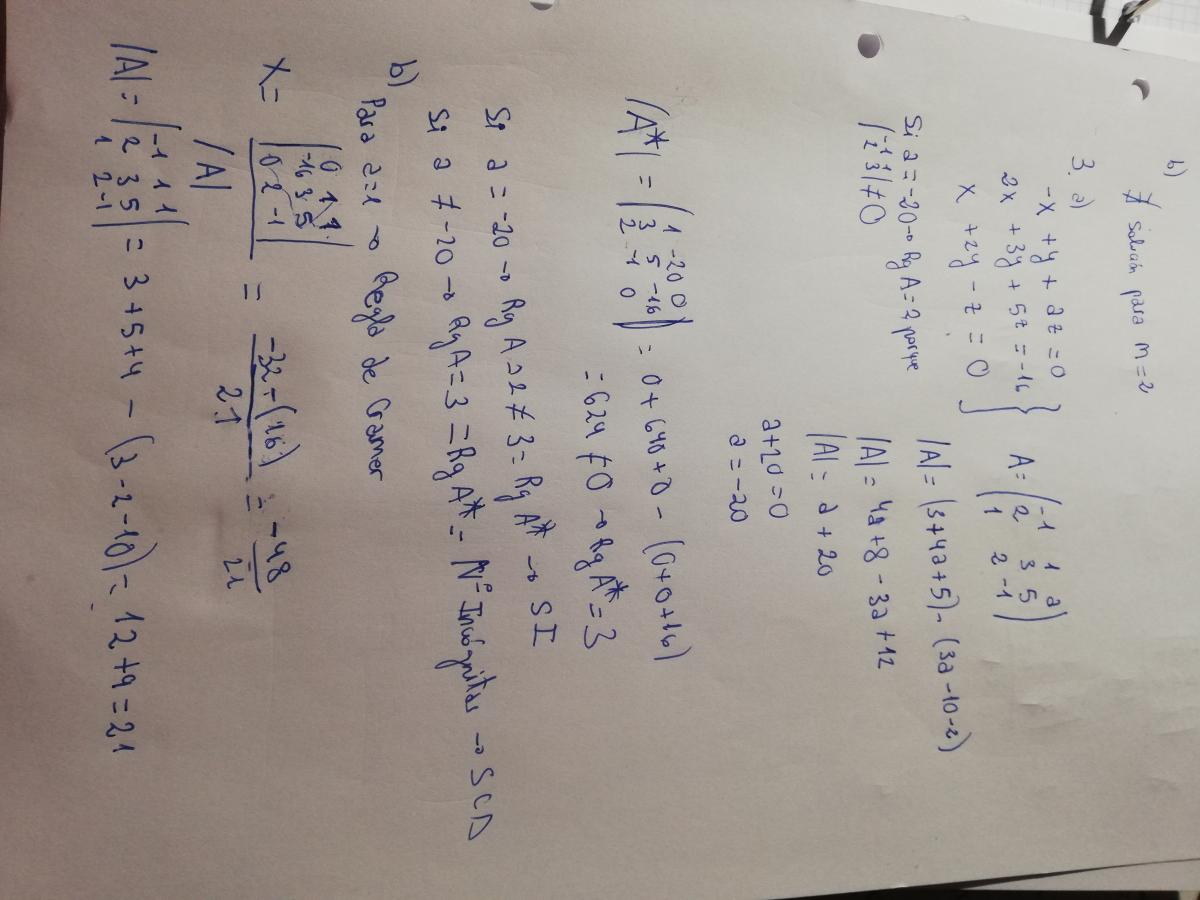 b) ∄ solución para m=2
3. a)
-x + y + az = 0
2x + 3y + 5z = -16
x + 2y - z = 0
A = (-1 1 a
2 3 5
1 2 -1)
|A| = (3+4a+5) - (3a-10-2)
|A| = 4a+8-3a+12
|A| = a+20
a+20=0
a=-20
Si a=-20 → Rg A=2 porque
|-1 1
2 3| ≠ 0
|A*| = |1 -20 0
3 5 -16
2 -1 0| = 0+640+0-(0+0+16)
= 624 ≠ 0 → Rg A* = 3
Si a = -20 → Rg A=2 ≠ 3 = Rg A* → SI
Si a ≠ -20 → Rg A = 3 = Rg A* = Nº Incógnitas → SCD
b) Para a=1 → Regla de Cramer
x = |0 1 1
-16 3 5
0 2 -1|
/ |A| = -32-(16) / 21 = -48 / 21
|A| = |-1 1 1
2 3 5
1 2 -1| = 3+5+4 - (3-2-10) = 12+9=21